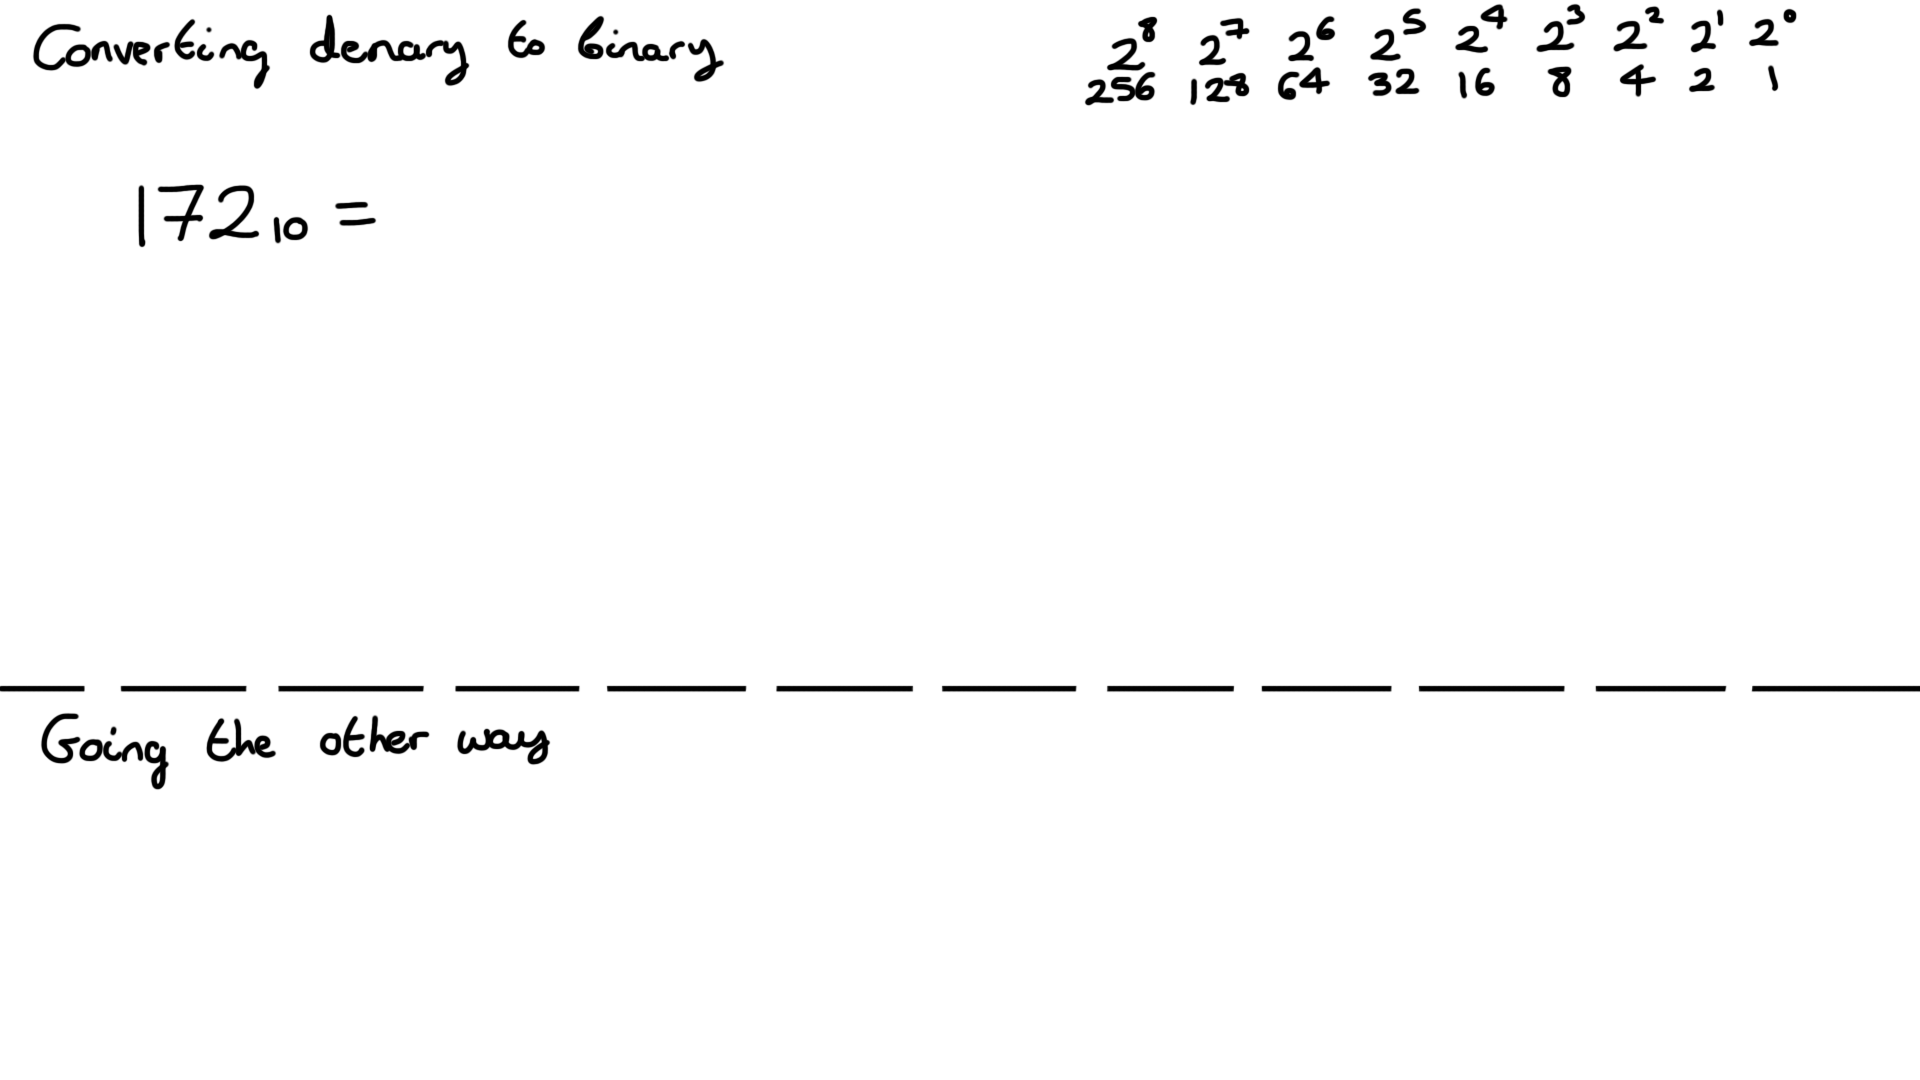 Converting denary to binary
2⁸ 2⁷ 2⁶ 2⁵ 2⁴ 2³ 2² 2¹ 2⁰
256 128 64 32 16 8 4 2 1
172₁₀ =
Going the other way